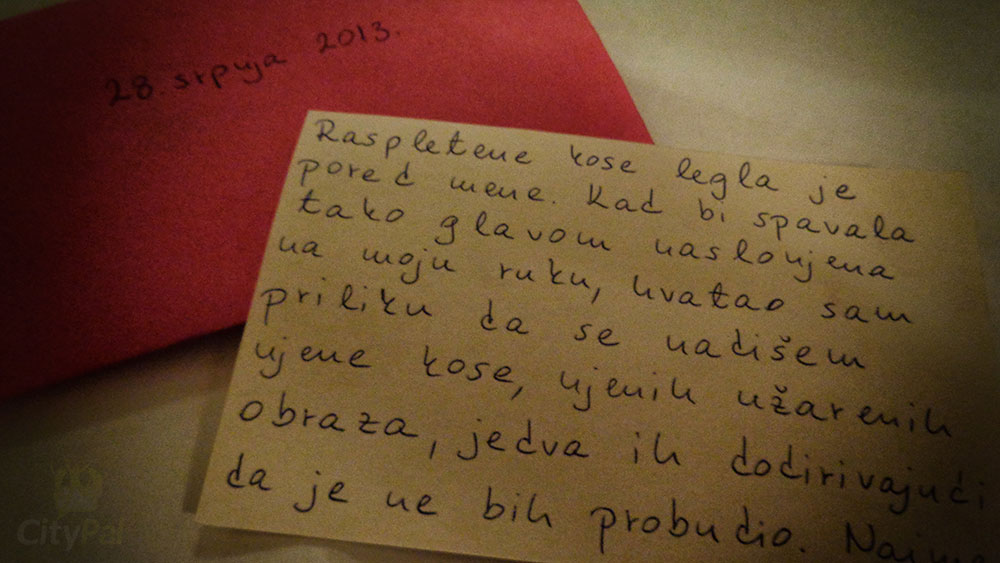 28. srpnja 2013.
Raspletene kose legla je
pored mene. Kad bi spavala
tako glavom naslonjena
na moju ruku, hvatao sam
priliku da se nadišem
njene kose, njenih užarenih
obraza, jedva ih dodirivajući
da je ne bih probudio.
CityPal